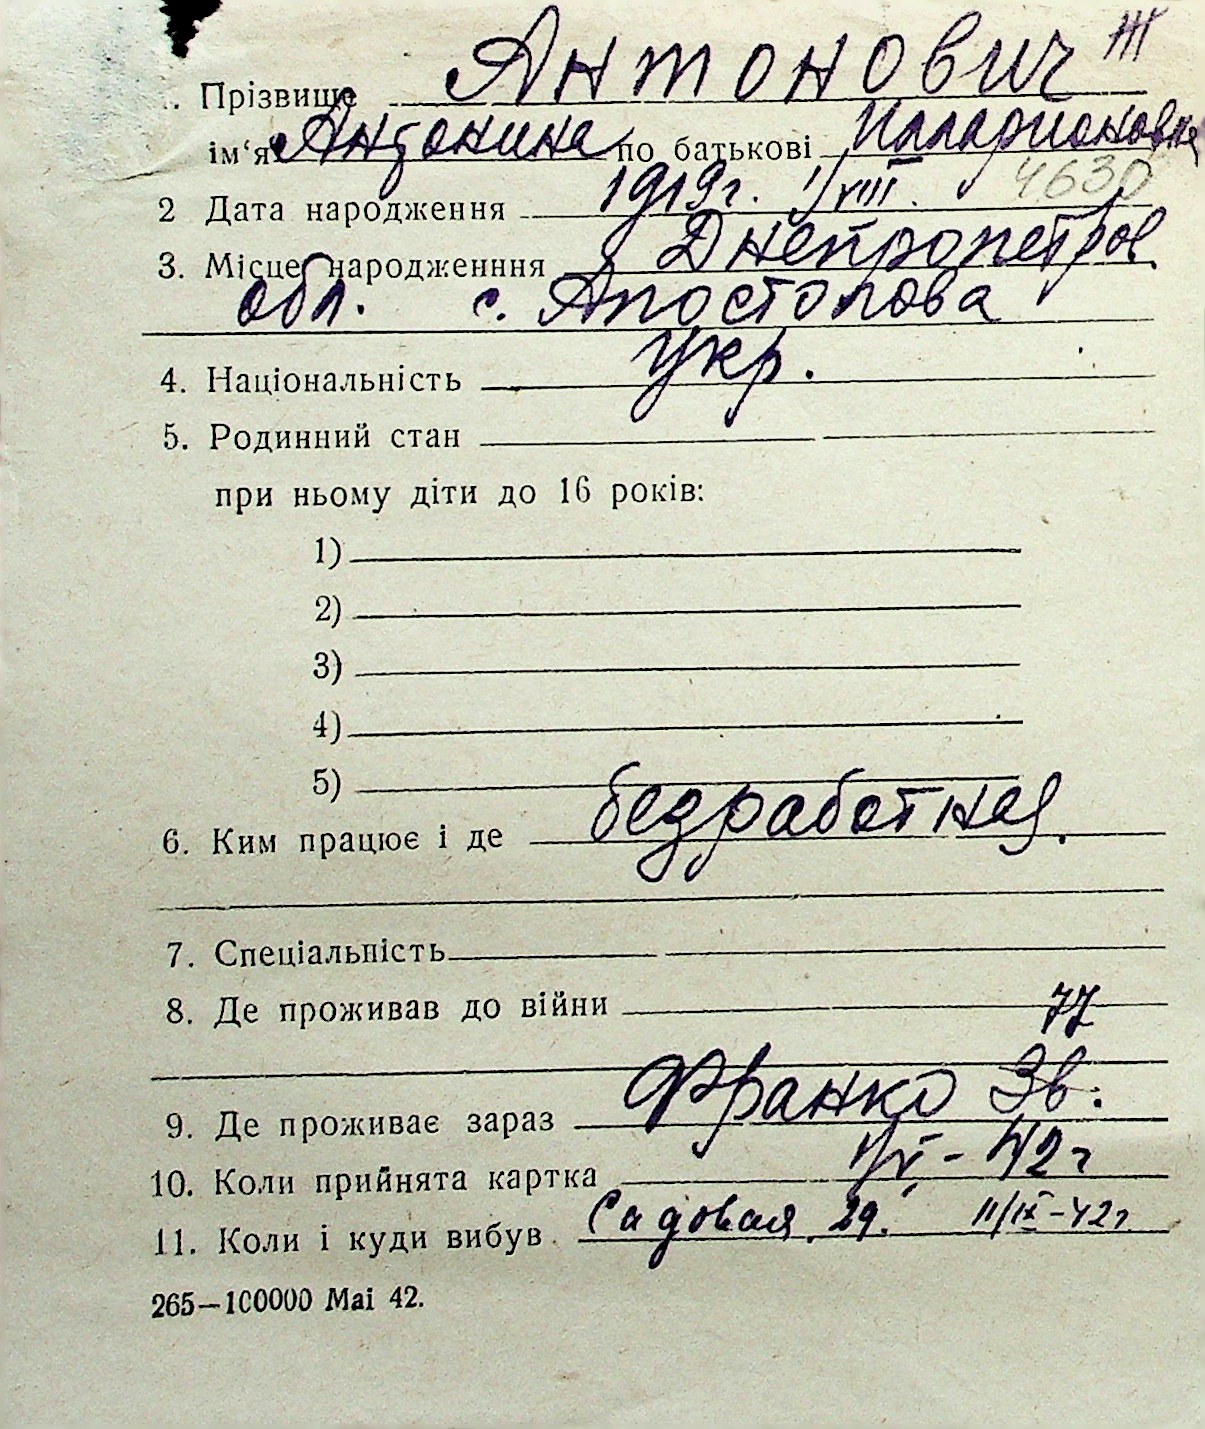 . Прізвище Антонович Ж
ім‘я Антонина по батькові Илларионовна
4630
2 Дата народження 1919г. 1/VIII.
3. Місце народженння Днепропетров.
обл. с. Апостолова
4. Національність Укр.
5. Родинний стан
при ньому діти до 16 років:
1)
2)
3)
4)
5)
6. Ким працює і де безработная.
7. Спеціальність
8. Де проживав до війни
77
9. Де проживає зараз Франко 3в.
10. Коли прийнята картка 1/V - 42г
11. Коли і куди вибув Садовая 29. 11/IX-42г
265—100000 Mai 42.